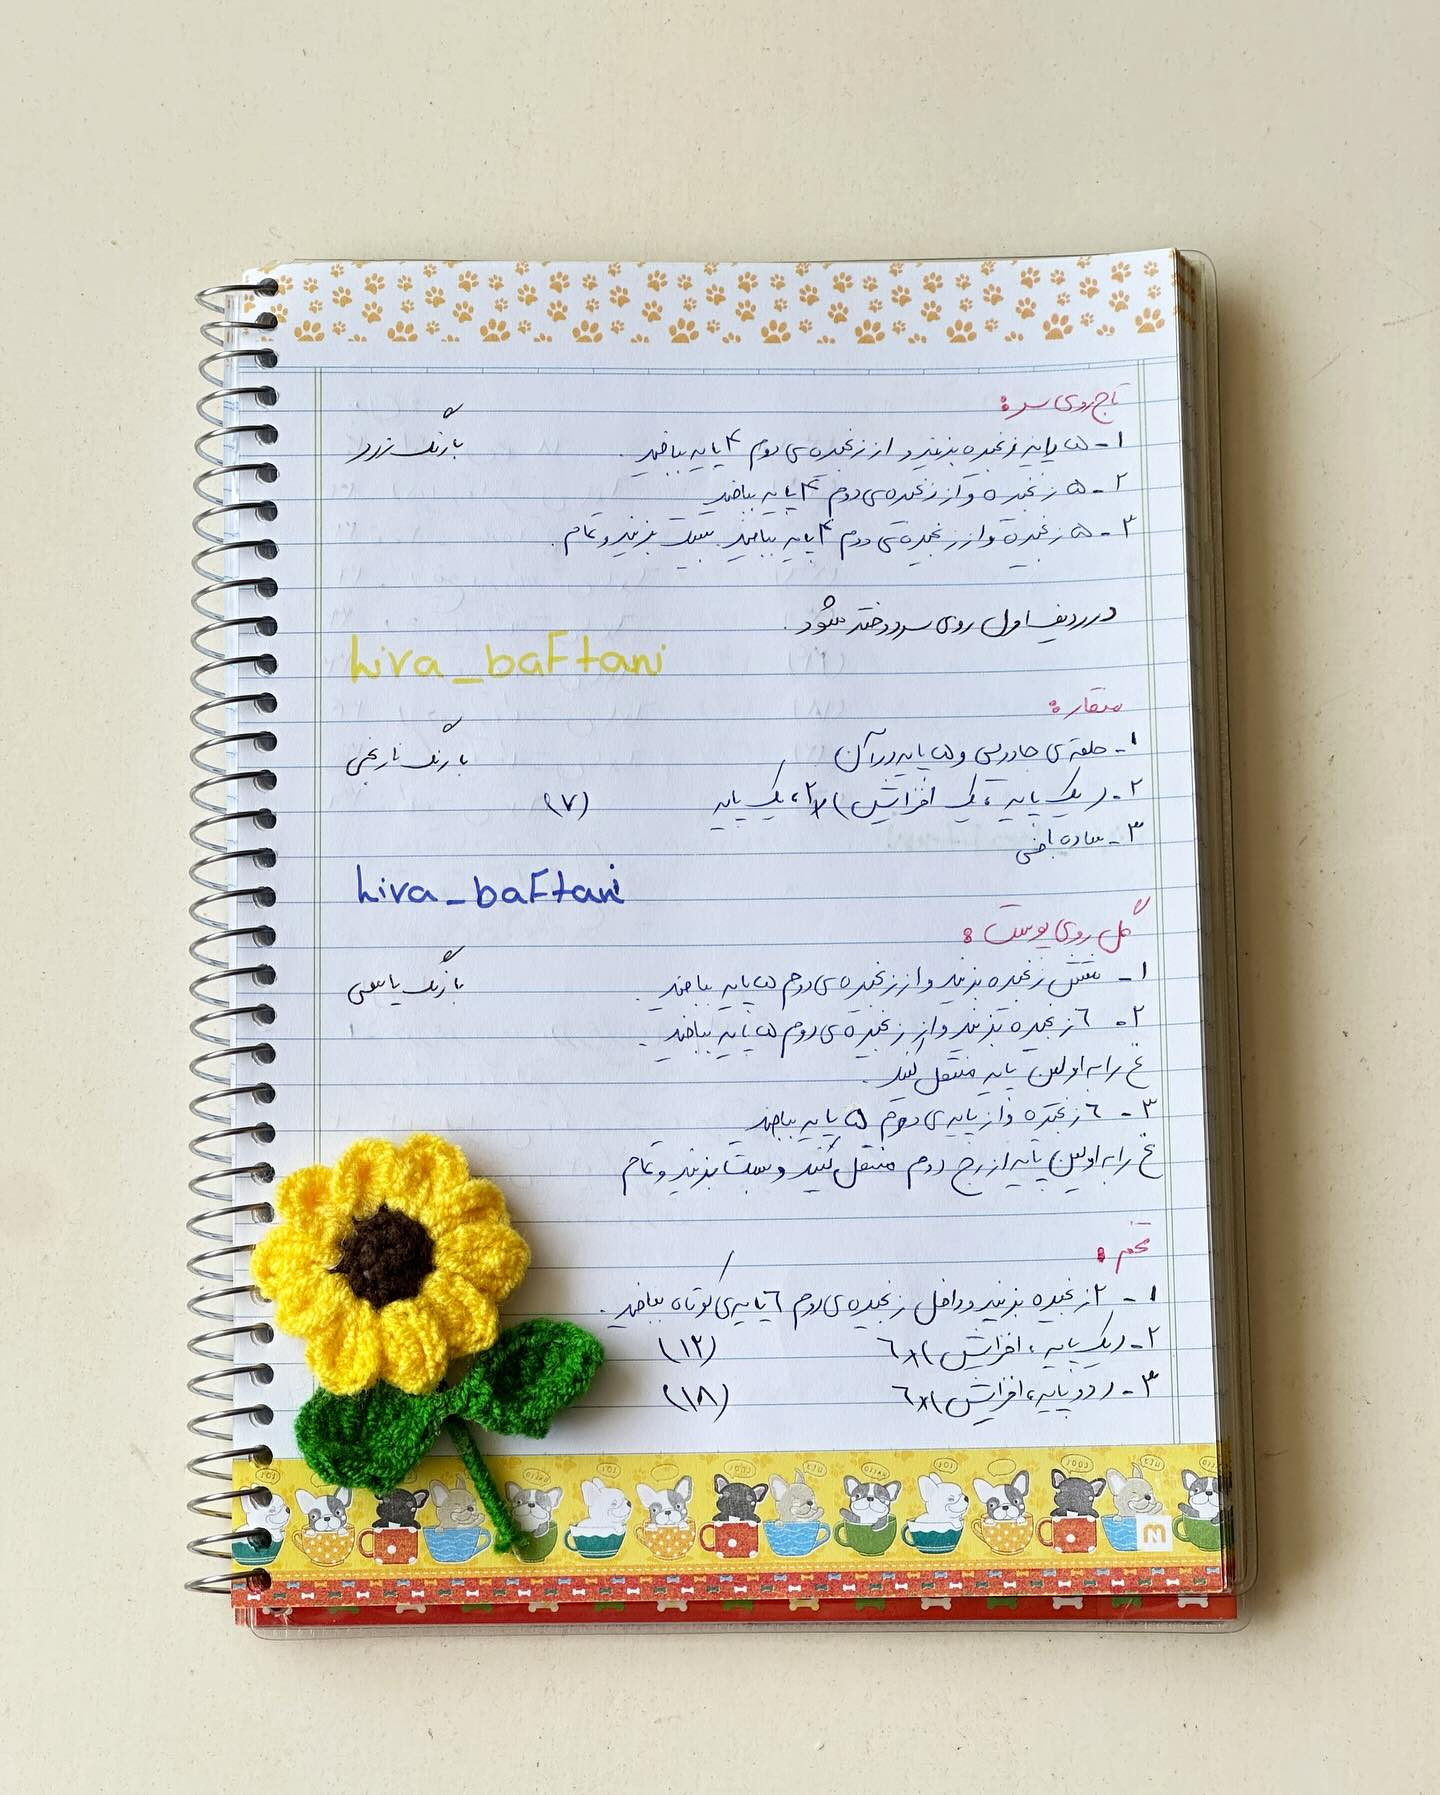 تاج روی سر:
۱- ۵ پایه زنجیره بزنید و از زنجیره‌ی دوم ۴ پایه ببافید. با رنگ زرد
۲- ۵ زنجیره و از زنجیره‌ی دوم ۴ پایه ببافید
۳- ۵ زنجیره و از زنجیره‌ی دوم ۴ پایه ببافید. ببست بزنید و تمام.
در ردیف اول روی سر دوخته میشود.
hira_baftani
منقار:
۱- حلقه‌ی جادویی و ۵ پایه در آن با رنگ نارنجی
۲- (یک پایه، یک افزایش)×۲، یک پایه (۷)
۳- ساده بافی
hira_baftani
گل روی پوست:
۱- شش زنجیره بزنید و از زنجیره‌ی دوم ۵ پایه ببافید. با رنگ یاسی
۲- ۶ زنجیره بزنید و از زنجیره‌ی دوم ۵ پایه ببافید.
نخ را به اولین پایه منتقل کنید.
۳- ۶ زنجیره و از پایه‌ی دوم ۵ پایه ببافید
نخ را به اولین پایه از رج دوم منتقل کنید و ببست بزنید و تمام
تخم:
۱- ۲ زنجیره بزنید و داخل زنجیره‌ی دوم ۶ پایه‌ی کوتاه ببافید.
۲- (یک پایه، افزایش)×۶ (۱۲)
۳- (دو پایه، افزایش)×۶ (۱۸)